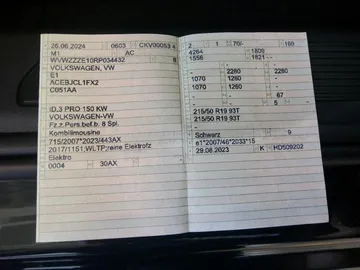 26.06.2024 0603 CKV00053 4
M1 AC
WVWZZZE10RP034432 8
VOLKSWAGEN, VW
E1
ACEBJCL1FX2
C051AA
ID.3 PRO 150 KW
VOLKSWAGEN-VW
Fz.z.Pers.bef.b. 8 Spl.
Kombilimousine
715/2007*2023/443AX
2017/1151;WLTP;reine Elektrofz
Elektro
0004 30AX
2 1 70/- 160
4264 1809
1556 1821 -
- 2280 -
1070 1260 -
1070 1260 -
- - 67
- - 5
215/50 R19 93T
215/50 R19 93T
-
Schwarz 9
e1*2007/46*2033*15
29.08.2023 K HD509202